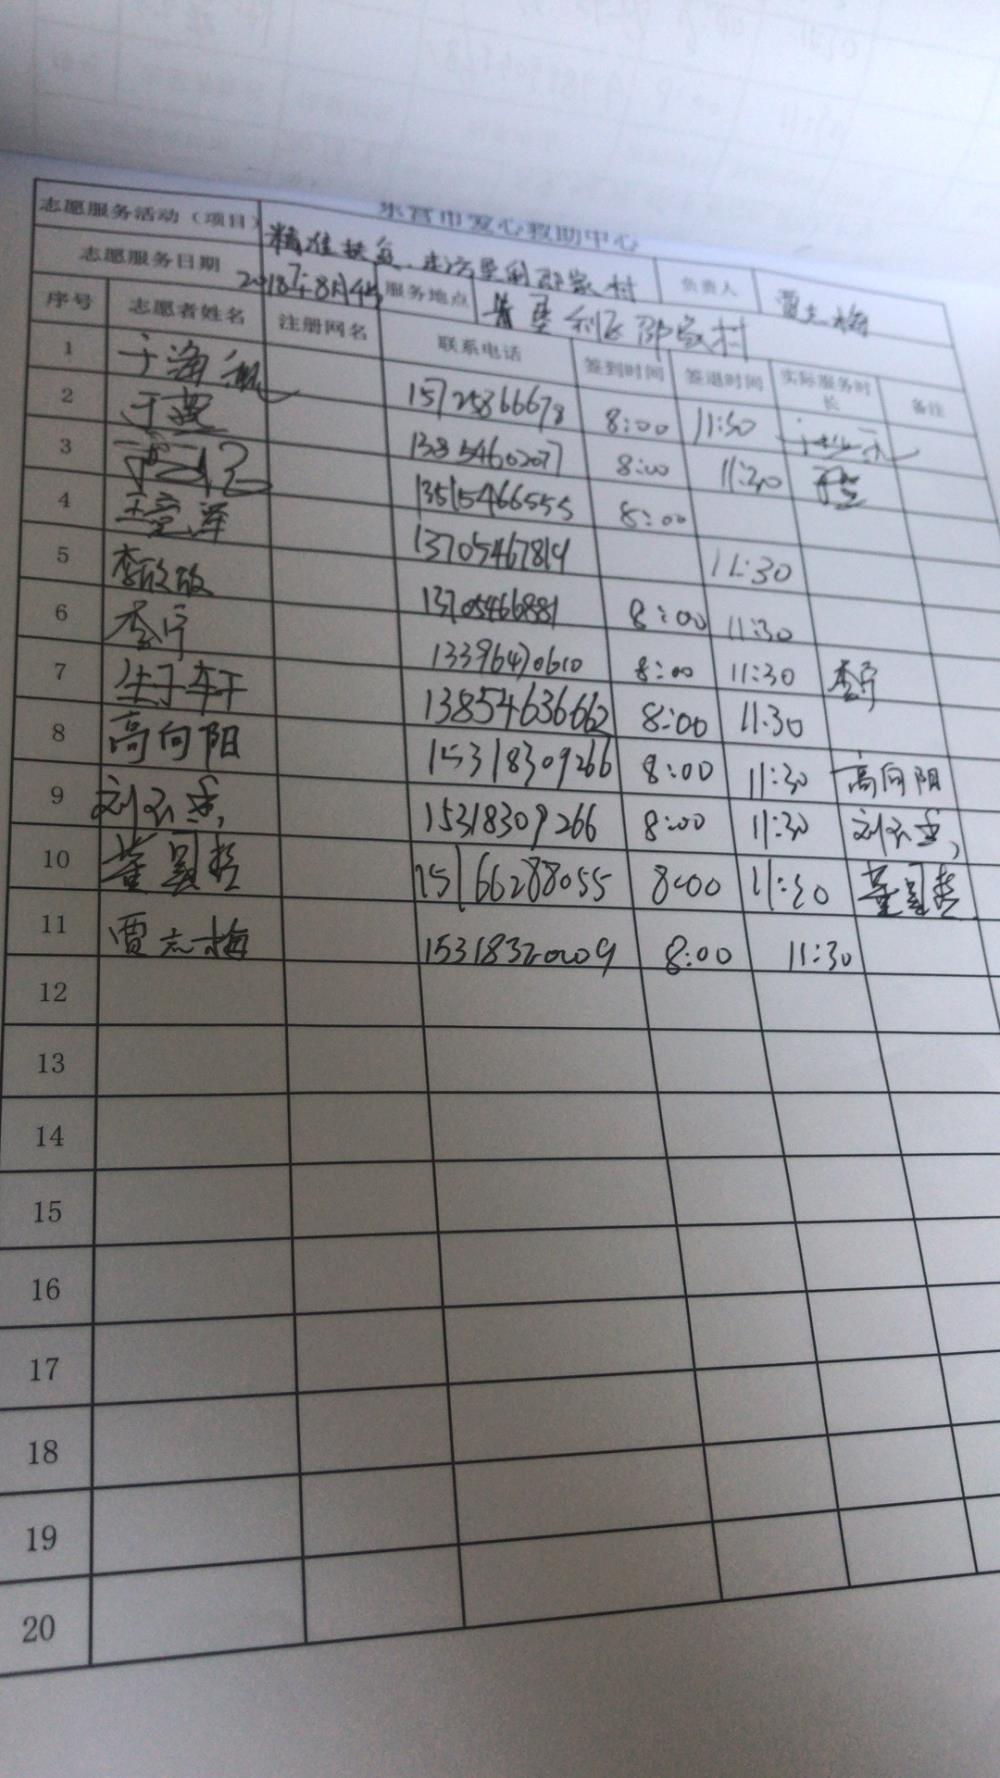 东营市爱心救助中心
志愿服务活动（项目） 精准扶贫、走访垦利邵家村 负责人 贾志梅
志愿服务日期 2018年8月4日 服务地点 垦利区邵家村
序号 志愿者姓名 注册网名 联系电话 签到时间 签退时间 实际服务时长 备注
1 于海 15725866678 8:00 11:30
2 于 13854602077 8:00 11:30
3 13515466555 8:00
4 王 13705467819 11:30
5 李欣欣 13705466881 8:00 11:30
6 李宁 13396470610 8:00 11:30 李宁
7 生子轩 13854636662 8:00 11:30
8 高向阳 15318309266 8:00 11:30 高向阳
9 刘 15318309266 8:00 11:30 刘
10 董 15166288055 8:00 11:30 董
11 贾志梅 15318320009 8:00 11:30
12
13
14
15
16
17
18
19
20